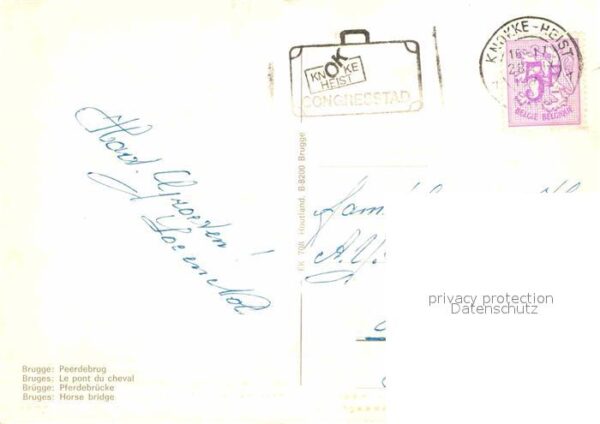 OK
KNOKKE
HEIST
CONGRESSTAD
KNOKKE-HEIST
5F
BELGIE BELGIQUE
Hart. Groeten!
Fam.
A.
FK 708 Houtland, B-8200 Brugge
privacy protection
Datenschutz
Brugge: Peerdebrug
Bruges: Le pont du cheval
Brügge: Pferdebrücke
Bruges: Horse bridge